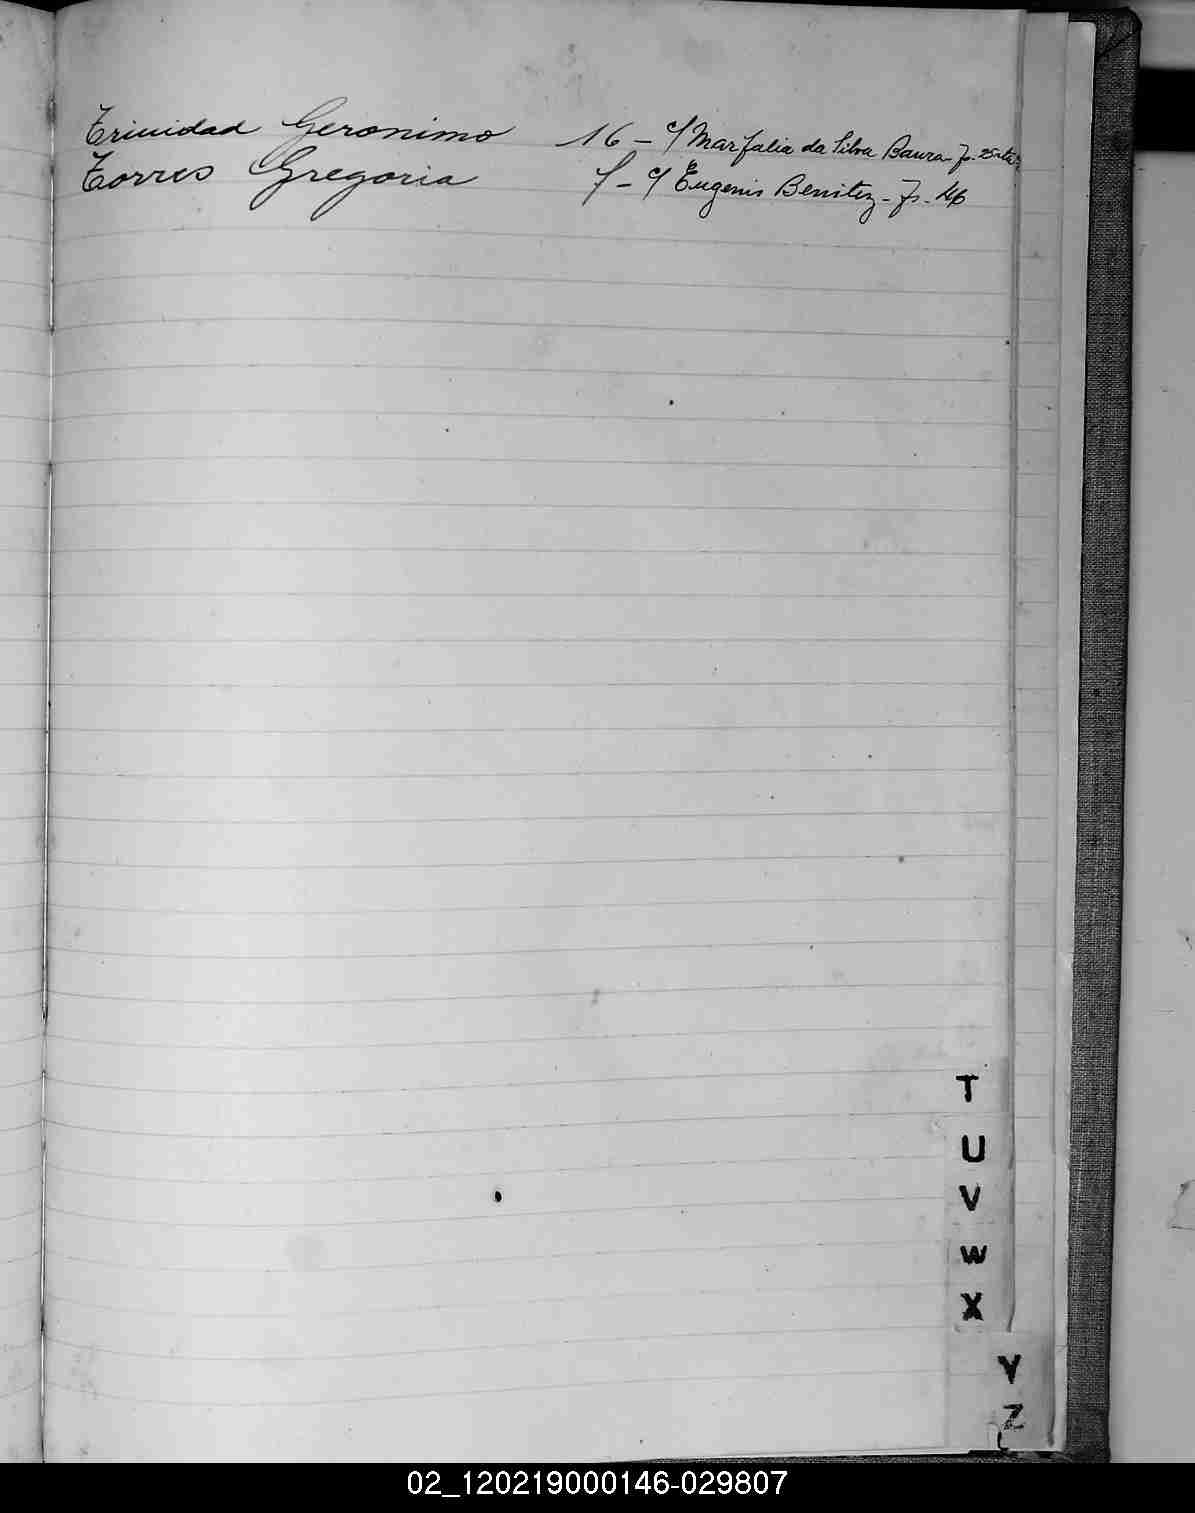 Trinidad Geronimo 16 - c/ Marfalia da Silva Baura - Fs.
Torres Gregoria c/ Eugenio Benitez - Fs. 46
T
U
V
W
X
Y
Z
02_120219000146-029807